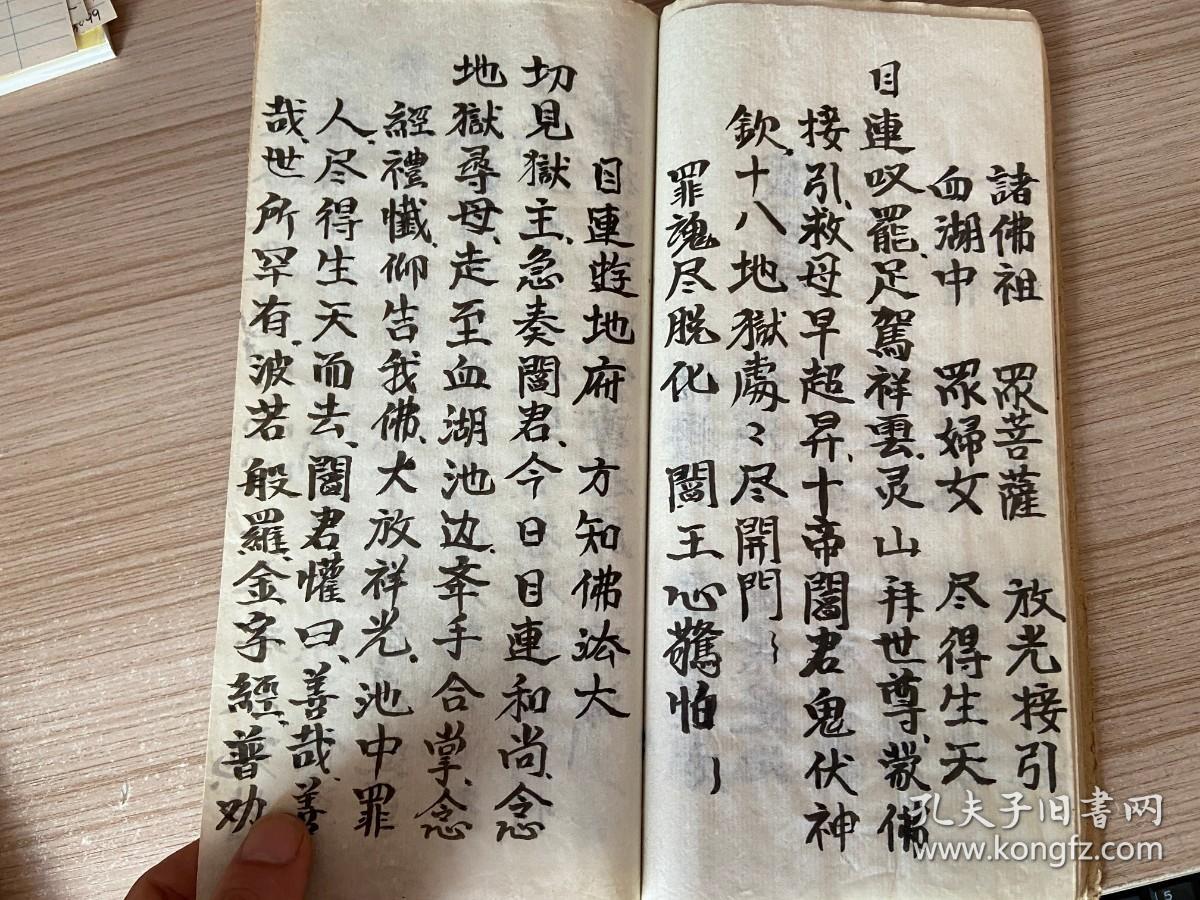 諸佛祖 眾菩薩 放光接引
血湖中 眾婦女 尽得生天
目連叹罷、足駕祥雲、灵山拜世尊、蒙佛
接引、救母早超昇、十帝閻君鬼伏神
欽、十八地獄處〻尽開門〻
罪魂尽脱化 閻王心驚怕〻
目連遊地府 方知佛法大
切見獄主、急奏閻君、今日目連和尚、念
地獄尋母、走至血湖池边、牽手合掌、念
經禮懺、仰告我佛、大放祥光、池中罪
人、尽得生天而去、閻君懽曰、善哉、善
哉、世所罕有、波若般羅、金字經、普劝
孔夫子旧書网
www.kongfz.com